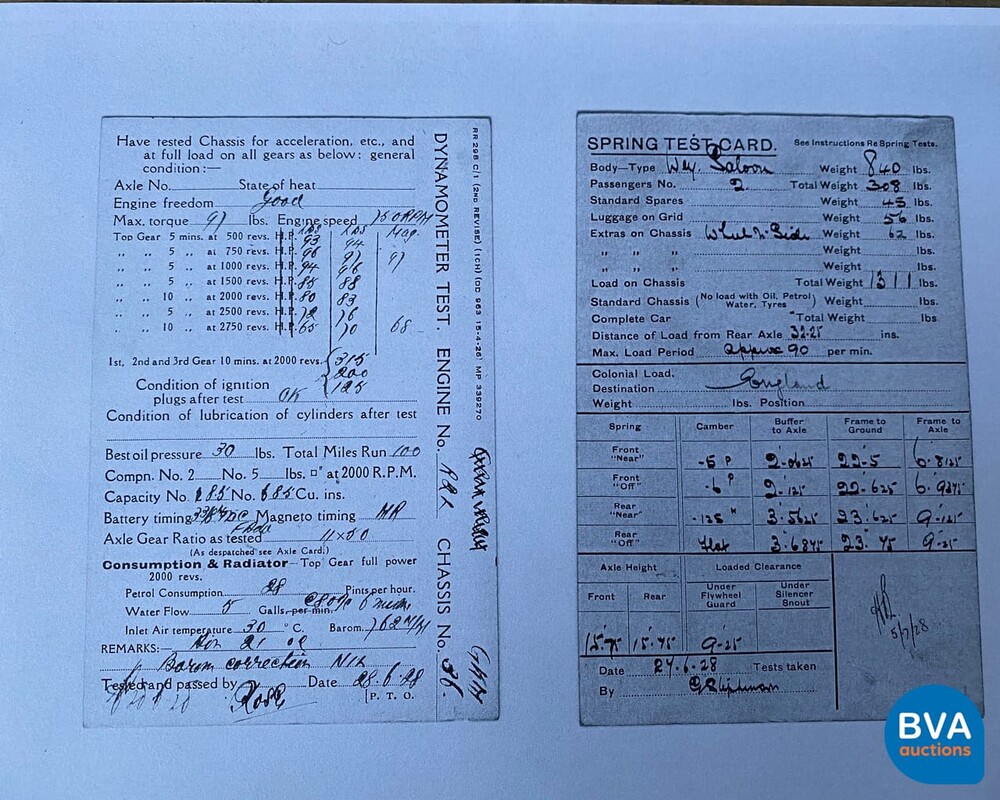 Have tested Chassis for acceleration, etc., and
at full load on all gears as below: general
condition:—
Axle No. State of heat
Engine freedom good
Max. torque 97 lbs. Engine speed 750 RPM
Top Gear 5 mins. at 500 revs. H.P. 93 94
„ „ 5 „ at 750 revs. H.P. 96 97 97
„ „ 5 „ at 1000 revs. H.P. 94 96
„ „ 5 „ at 1500 revs. H.P. 85 88
„ „ 10 „ at 2000 revs. H.P. 80 83
„ „ 5 „ at 2500 revs. H.P. 72 76
„ „ 10 „ at 2750 revs. H.P. 65 70 68
1st, 2nd and 3rd Gear 10 mins. at 2000 revs. 315
200
125
Condition of ignition
plugs after test OK
Condition of lubrication of cylinders after test
Best oil pressure 30 lbs. Total Miles Run 100
Compn. No. 2 No. 5 lbs. □" at 2000 R.P.M.
Capacity No. 1 85 No. 6 85 Cu. ins.
Battery timing Magneto timing
Axle Gear Ratio as tested 11 x 50
(As despatched see Axle Card.)
Consumption & Radiator—Top Gear full power
2000 revs.
Petrol Consumption 28 Pints per hour.
Water Flow 5 Galls. per min.
Inlet Air temperature 30 °C. Barom. 762
REMARKS:
Barom correction Nil
Tested and passed by Date 28.6.28
[P. T. O.
DYNAMOMETER TEST. ENGINE No. CHASSIS No.
RR 298 C/1 (2ND REVISE) (1CH) (DD 993 15-4-26) MP 339270
SPRING TEST CARD. See Instructions Re Spring Tests.
Body—Type Wey. Saloon Weight 840 lbs.
Passengers No. 2 Total Weight 308 lbs.
Standard Spares Weight 45 lbs.
Luggage on Grid Weight 56 lbs.
Extras on Chassis Weight 62 lbs.
„ „ „ Weight lbs.
„ „ „ Weight lbs.
Load on Chassis Total Weight 1311 lbs.
Standard Chassis (No load with Oil, Petrol, Water, Tyres) Weight lbs.
Complete Car Total Weight lbs
Distance of Load from Rear Axle 32.25 ins.
Max. Load Period approx 90 per min.
Colonial Load.
Destination England
Weight lbs. Position
Spring Camber Buffer to Axle Frame to Ground Frame to Axle
Front "Near" -5 P 2.0625 22.5 6.8125
Front "Off" -6 P 2.125 22.625 6.9375
Rear "Near" -125 N 3.5625 23.625 9.125
Rear "Off" flat 3.6875 23.75 9.25
Axle Height Loaded Clearance
Front Rear Under Flywheel Guard Under Silencer Snout
15.75 15.75 9.25
5/7/28
Date 27.6.28 Tests taken
By
BVA
auctions